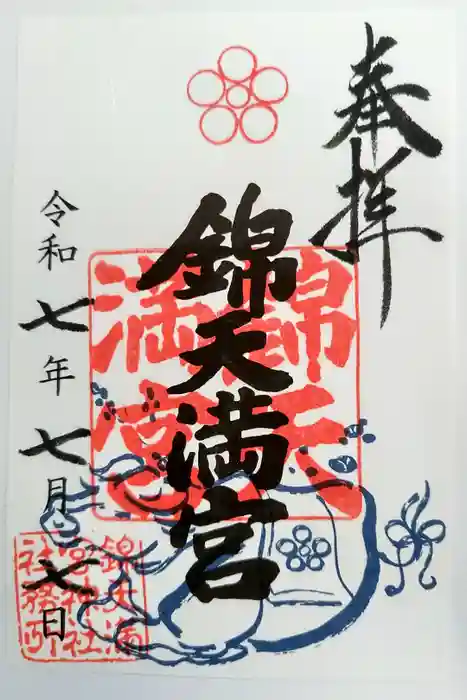 奉拝
錦天満宮
令和七年七月七日
錦天満宮
錦天満宮神社社務所